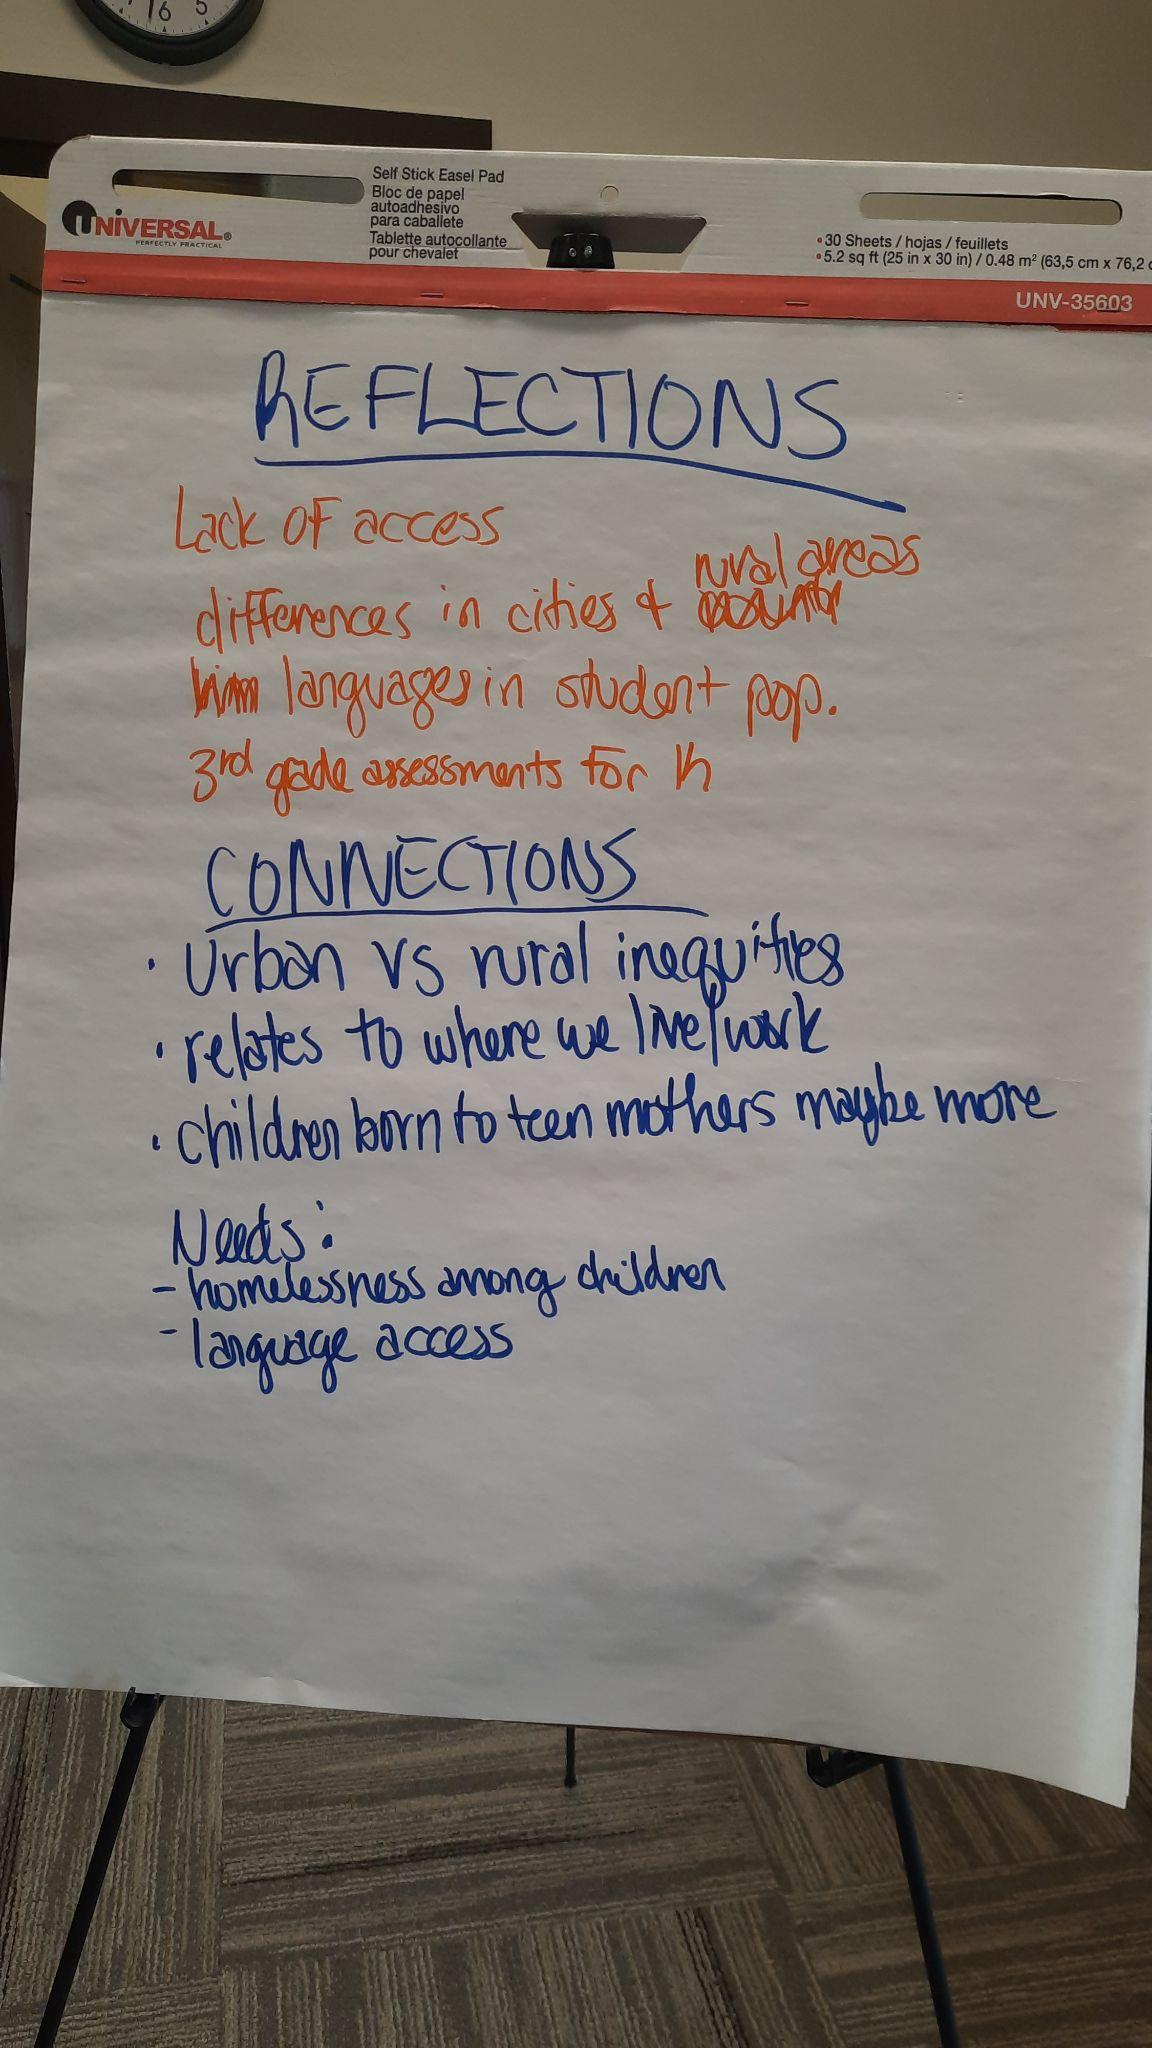 6 5
Self Stick Easel Pad
Bloc de papel
autoadhesivo
para caballete
Tablette autocollante
pour chevalet
UNIVERSAL®
PERFECTLY PRACTICAL
•30 Sheets / hojas / feuillets
•5.2 sq ft (25 in x 30 in) / 0.48 m² (63,5 cm x 76,2 c
UNV-35603
REFLECTIONS
Lack of access
differences in cities & rural areas
languages in student pop.
3rd grade assessments for K
CONNECTIONS
• Urban vs rural inequities
• relates to where we live/work
• children born to teen mothers maybe more
Needs:
- homelessness among children
- language access